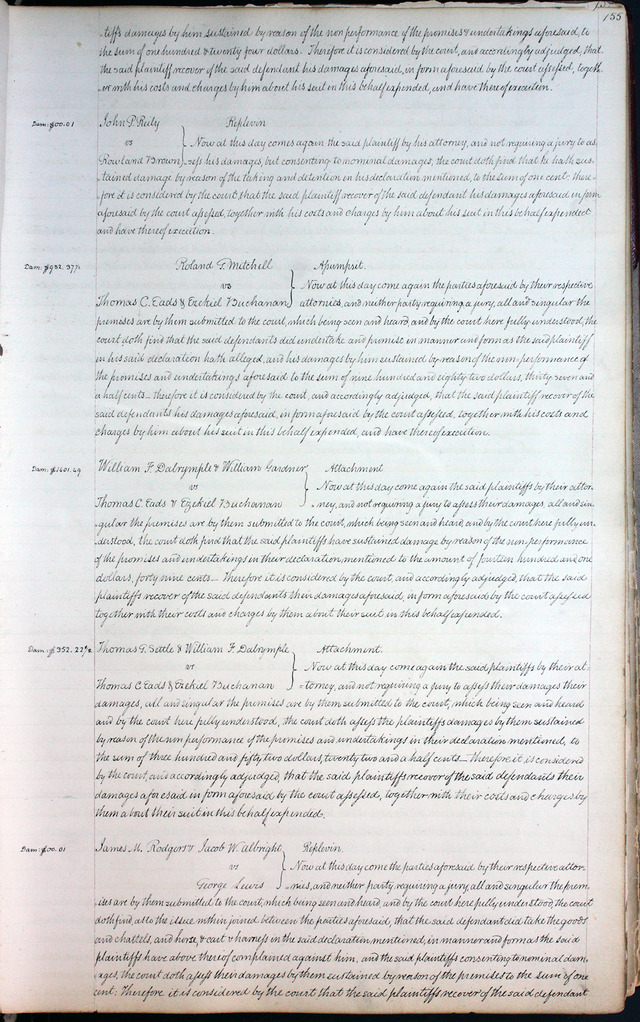 155
-tiffs damages by him sustained by reason of the non performance of the premises & undertakings aforesaid, to
the sum of one hundred & twenty four dollars. Therefore it is considered by the court, and accordingly adjudged, that
the said plaintiff recover of the said defendant his damages aforesaid, in form aforesaid by the court assessed, togeth-
er with his costs and charges by him about his suit in this behalf expended, and have thereof execution.
Dam: $00.01 John P. Rily Replevin
vs Now at this day comes again the said plaintiff by his attorney, and not requiring a jury to as
Rowland Brown -sess his damages, but consenting to nominal damages, the court doth find that he hath sus-
tained damage by reason of the taking and detention in his declaration mentioned, to the sum of one cent: there-
fore it is considered by the court that the said plaintiff recover of the said defendant his damages aforesaid in form
aforesaid by the court assessed, together with his costs and charges by him about his suit in this behalf expended
and have thereof execution.
Dam: $982.37½ Roland T. Mitchell Assumpsit.
vs Now at this day come again the parties aforesaid by their respective
Thomas C. Eads & Ezekiel Buchanan attornies, and neither party requiring a jury, all and singular the
premises are by them submitted to the court, which being seen and heard, and by the court here fully understood, the
court doth find that the said defendants did undertake and promise in manner and form as the said plaintiff
in his said declaration hath alleged, and his damages by him sustained by reason of the non-performance of
the promises and undertakings aforesaid to the sum of nine hundred and eighty two dollars, thirty seven and
a half cents – therefore it is considered by the court, and accordingly adjudged, that the said plaintiff recover of the
said defendants his damages aforesaid, in form aforesaid by the court assessed, together with his costs and
charges by him about his suit in this behalf expended, and have thereof execution.
Dam: $1401.49 William F. Dalrymple & William Gardner Attachment
vs Now at this day come again the said plaintiffs by their attor-
Thomas C. Eads & Ezekiel Buchanan -ney, and not requiring a jury to assess their damages, all and sin-
-gular the premises are by them submitted to the court, which being seen and heard and by the court here fully un-
derstood, the court doth find that the said plaintiffs have sustained damage by reason of the non-performance
of the promises and undertakings in their declaration mentioned to the amount of fourteen hundred and one
dollars, forty nine cents – Therefore it is considered by the court, and accordingly adjudged, that the said
plaintiffs recover of the said defendants their damages aforesaid, in form aforesaid by the court assessed
together with their costs and charges by them about their suit in this behalf expended.
Dam: $352.22½ Thomas G. Settle & William F. Dalrymple Attachment.
vs Now at this day come again the said plaintiffs by their at-
Thomas C. Eads & Ezekiel Buchanan -torney, and not requiring a jury to assess their damages their
damages, all and singular the premises are by them submitted to the court, which being seen and heard
and by the court here fully understood, the court doth assess the plaintiffs damages by them sustained
by reason of the non performance of the premises and undertakings in their declaration mentioned, to
the sum of three hundred and fifty two dollars, twenty two and a half cents – therefore it is considered
by the court, and accordingly adjudged, that the said plaintiffs recover of the said defendants their
damages aforesaid in form aforesaid by the court assessed, together with their costs and charges by
them about their suit in this behalf expended.
Dam: $00.01 James M. Rodgers & Jacob W. Albright Replevin.
vs Now at this day come the parties aforesaid by their respective attor-
George Lewis -nies, and neither party requiring a jury, all and singular the prem-
ises are by them submitted to the court, which being seen and heard, and by the court here fully understood, the court
doth find, as to the issue within joined between the parties aforesaid, that the said defendant did take the goods
and chattels, and horse, & cart & harness in the said declaration mentioned, in manner and form as the said
plaintiffs have above thereof complained against him, and the said plaintiffs consenting to nominal dam-
ages, the court doth assess their damages by them sustained by reason of the premises to the sum of one
cent: Therefore it is considered by the court that the said plaintiffs recover of the said defendant